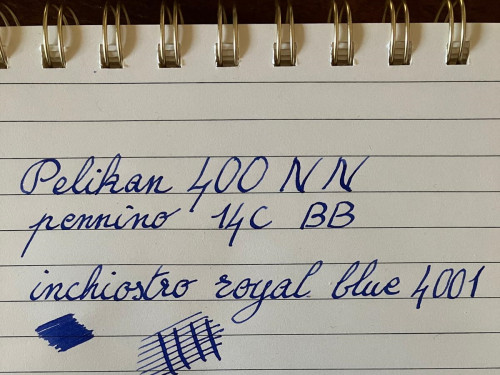 Pelikan 400 NN
pennino 14C BB
inchiostro royal blue 4001